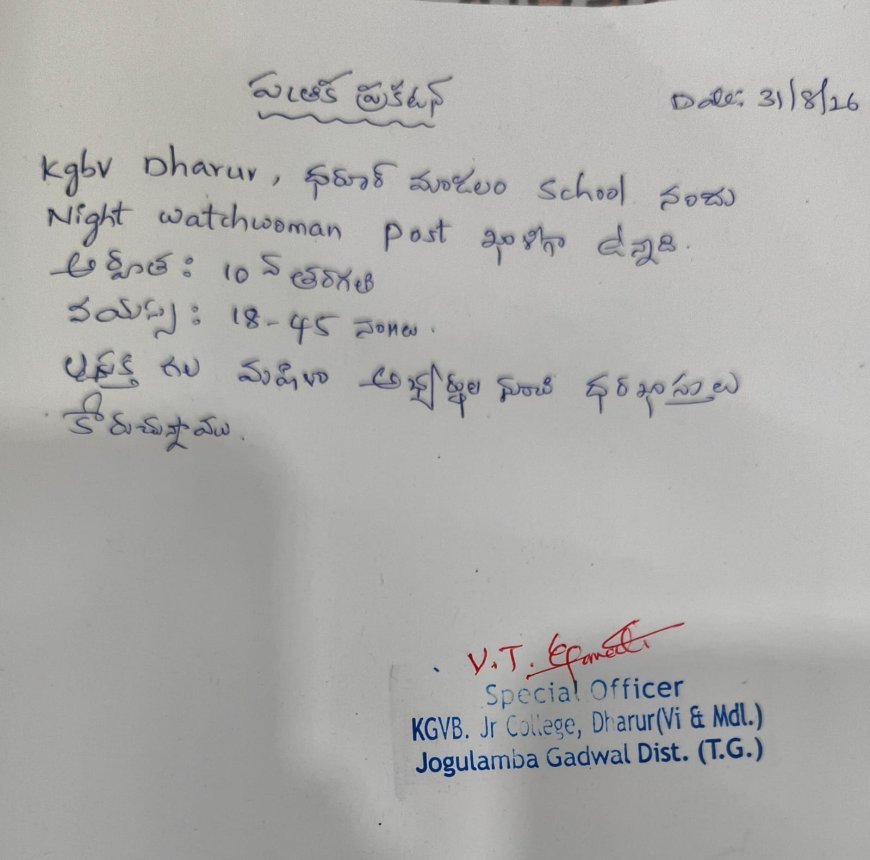 పత్రిక ప్రకటన
Date: 31/8/26
Kgbv Dharur, ధరూర్ మండలం school నందు
Night watchwoman post ఖాళీగా ఉన్నది.
అర్హత: 10వ తరగతి
వయస్సు: 18-45 సంలు.
ఆసక్తి గల మహిళా అభ్యర్థుల నుంచి ధరఖాస్తులు
కోరుచున్నాము.
V.T.
Special Officer
KGVB. Jr College, Dharur(Vi & Mdl.)
Jogulamba Gadwal Dist. (T.G.)